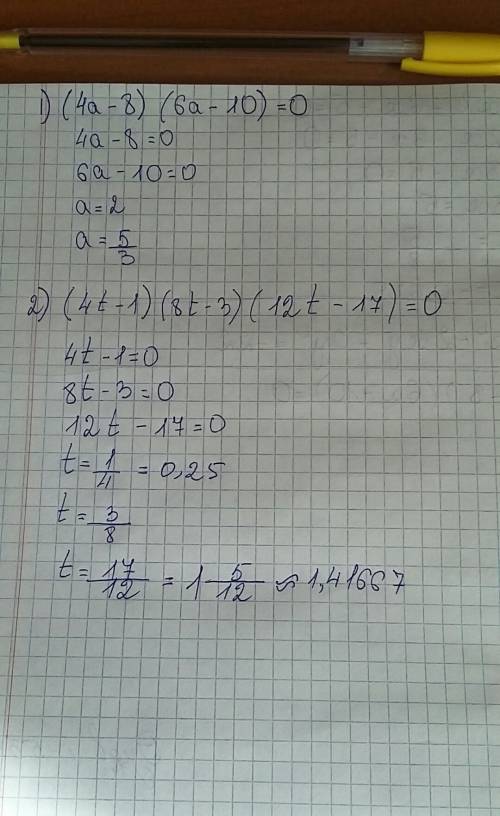 1) (4a-8) (6a-10)=0
4a-8=0
6a-10=0
a=2
a=5/3
2) (4t-1)(8t-3)(12t-17)=0
4t-1=0
8t-3=0
12t-17=0
t=1/4=0,25
t=3/8
t=17/12=1 5/12≈1,41667